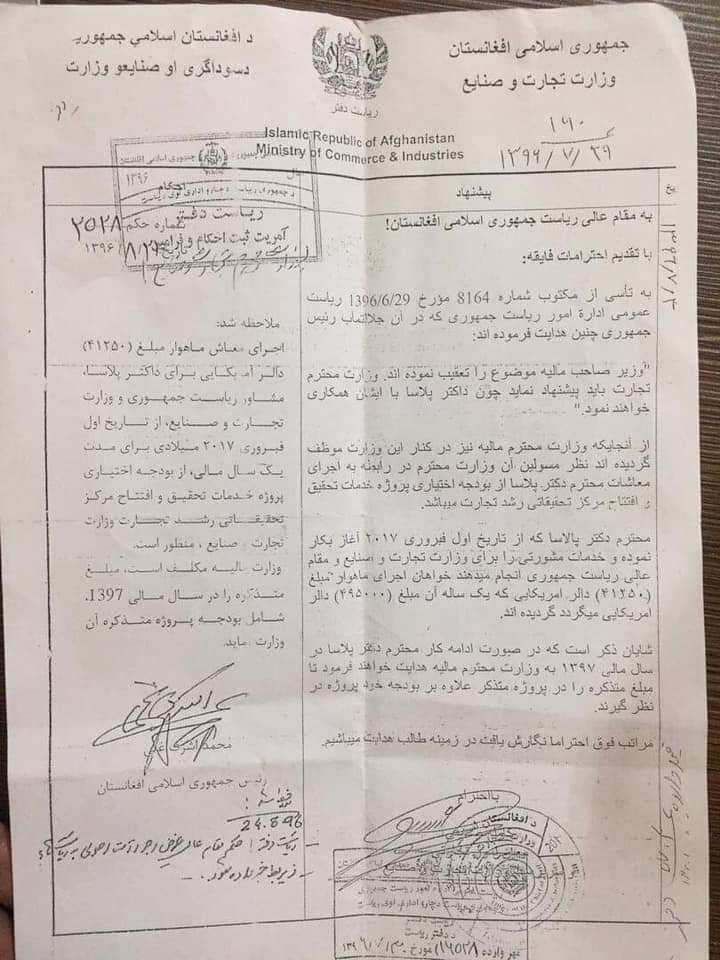 جمهوری اسلامی افغانستان
وزارت تجارت و صنایع
د افغانستان اسلامي جمهوریت
دسوداگری او صنایعو وزارت
ریاست دفتر
Islamic Republic of Afghanistan
Ministry of Commerce & Industries
۱۶۰
۱۳۹۶/۷/۲۹
پیشنهاد
به مقام عالی ریاست جمهوری اسلامی افغانستان!
با تقدیم احترامات فایقه:
به تأسی از مکتوب شماره 8164 مؤرخ 1396/6/29 ریاست
عمومی ادارۀ امور ریاست جمهوری که در آن جلالتماب رئیس
جمهوری چنین هدایت فرموده اند:
"وزیر صاحب مالیه موضوع را تعقیب نموده اند. وزارت محترم
تجارت باید پیشنهاد نماید چون داکتر پلاسا با ایشان همکاری
خواهند نمود."
از آنجایکه وزارت محترم مالیه نیز در کنار این وزارت موظف
گردیده اند نظر مسولین آن وزارت محترم در رابطه به اجرای
معاشات محترم دکتر پلاسا از بودجه اختیاری پروژه خدمات تحقیق
و افتتاح مرکز تحقیقاتی رشد تجارت میباشد.
محترم دکتر پالاسا که از تاریخ اول فبروری ۲۰۱۷ آغاز بکار
نموده و خدمات مشورتی را برای وزارت تجارت و صنایع و مقام
عالی ریاست جمهوری انجام میدهند خواهان اجرای ماهوار مبلغ
(۴۱۲۵۰) دالر امریکایی که یک ساله آن مبلغ (۴۹۵۰۰۰) دالر
امریکایی میگردد گردیده اند.
شایان ذکر است که در صورت ادامه کار محترم دکتر پلاسا در
سال مالی ۱۳۹۷ به وزارت محترم مالیه هدایت خواهند فرمود تا
مبلغ متذکره را در پروژه متذکر علاوه بر بودجه خود پروژه در
نظر گیرند.
مراتب فوق احتراما نگارش یافت در زمینه طالب هدایت میباشیم.
با احترام
د افغانستان
جمهوری اسلامی افغانستان
سال ۱۳۹۶
احکام
ریاست دفتر
شماره حکم ۲۵۲۸
آمریت ثبت احکام و فرامین
ملاحظه شد:
اجرای معاش ماهوار مبلغ (۴۱۲۵۰)
دالر امریکایی برای داکتر پلاسا،
مشاور ریاست جمهوری و وزارت
تجارت و صنایع، از تاریخ اول
فبروری ۲۰۱۷ میلادی برای مدت
یک سال مالی، از بودجه اختیاری
پروژه خدمات تحقیق و افتتاح مرکز
تحقیقاتی رشد تجارت وزارت
تجارت و صنایع، منظور است.
وزارت مالیه مکلف است، مبلغ
متذکره را در سال مالی 1397،
شامل بودجه پروژه متذکره آن
وزارت نماید.
محمد اشرف غنی
رئیس جمهوری اسلامی افغانستان
24.8.96
د دفتر ریاست